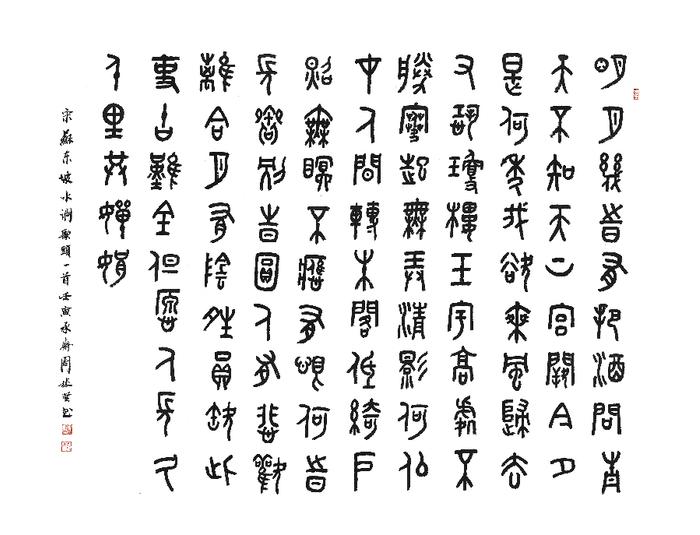 明月幾時有把酒問青
天不知天上宮闕今夕
是何年我欲乘風歸去
又恐瓊樓玉宇高處不
勝寒起舞弄清影何似
在人間轉朱閣低綺戶
照無眠不應有恨何時
長向別時圓人有悲歡
離合月有陰晴圓缺此
事古難全但願人長久
千里共嬋娟
宋蘇东坡水調歌頭一首壬寅